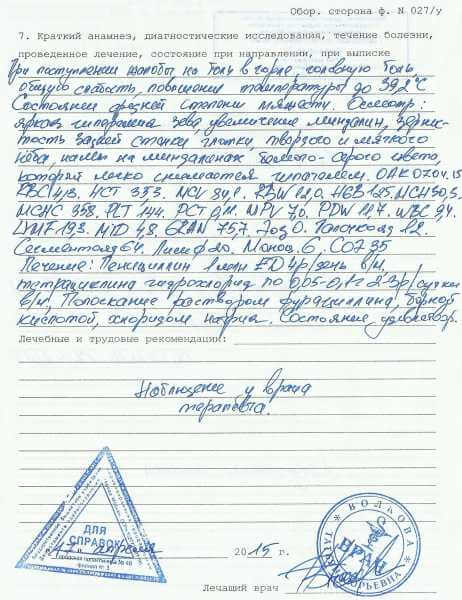 Обор. сторона ф. N 027/у
7. Краткий анамнез, диагностические исследования, течение болезни,
проведенное лечение, состояние при направлении, при выписке
При поступлении жалобы на боль в горле, головную боль
общую слабость, повышении температуры до 39,2°C
Состояние средней степени тяжести. Осмотр:
яркая гиперемия зева увеличение миндалин, зернис-
тость задней стенки глотки, твердого и мягкого
нёба, налеты на миндалинах беловато-серого цвета,
который легко снимается шпателем. ОАК 07.04.15
RBC 4,13. HCT 35,3. MCV 84,1. RDW 12,0. HGB 125. MCH 30,3.
MCHC 358. PLT 144. PCT 0,11. MPV 7,6. PDW 12,7. WBC 9,4.
LYMF 19,3. MID 4,8. GRAN 75,7. Эоз 0. Палочкояд 12.
Сегментояд 64. Лимф 20. Моноц. 6. СОЭ 35
Лечение: Пенициллин 1 млн ЕД 4р/день в/м,
тетрациклина гидрохлорид по 0,05-0,1 г 2-3р/сутки
в/м, Полоскание раствором фурацилина, борной
кислотой, хлоридом натрия. Состояние удовлетвор.
Лечебные и трудовые рекомендации:
Наблюдение у врача
терапевта.
ДЛЯ
СПРАВОК
"17" апреля 2015 г.
Городская поликлиника № 46
Филиал № 3
ВОЛКОВА
ВРАЧ
ЮРЬЕВНА
Лечащий врач